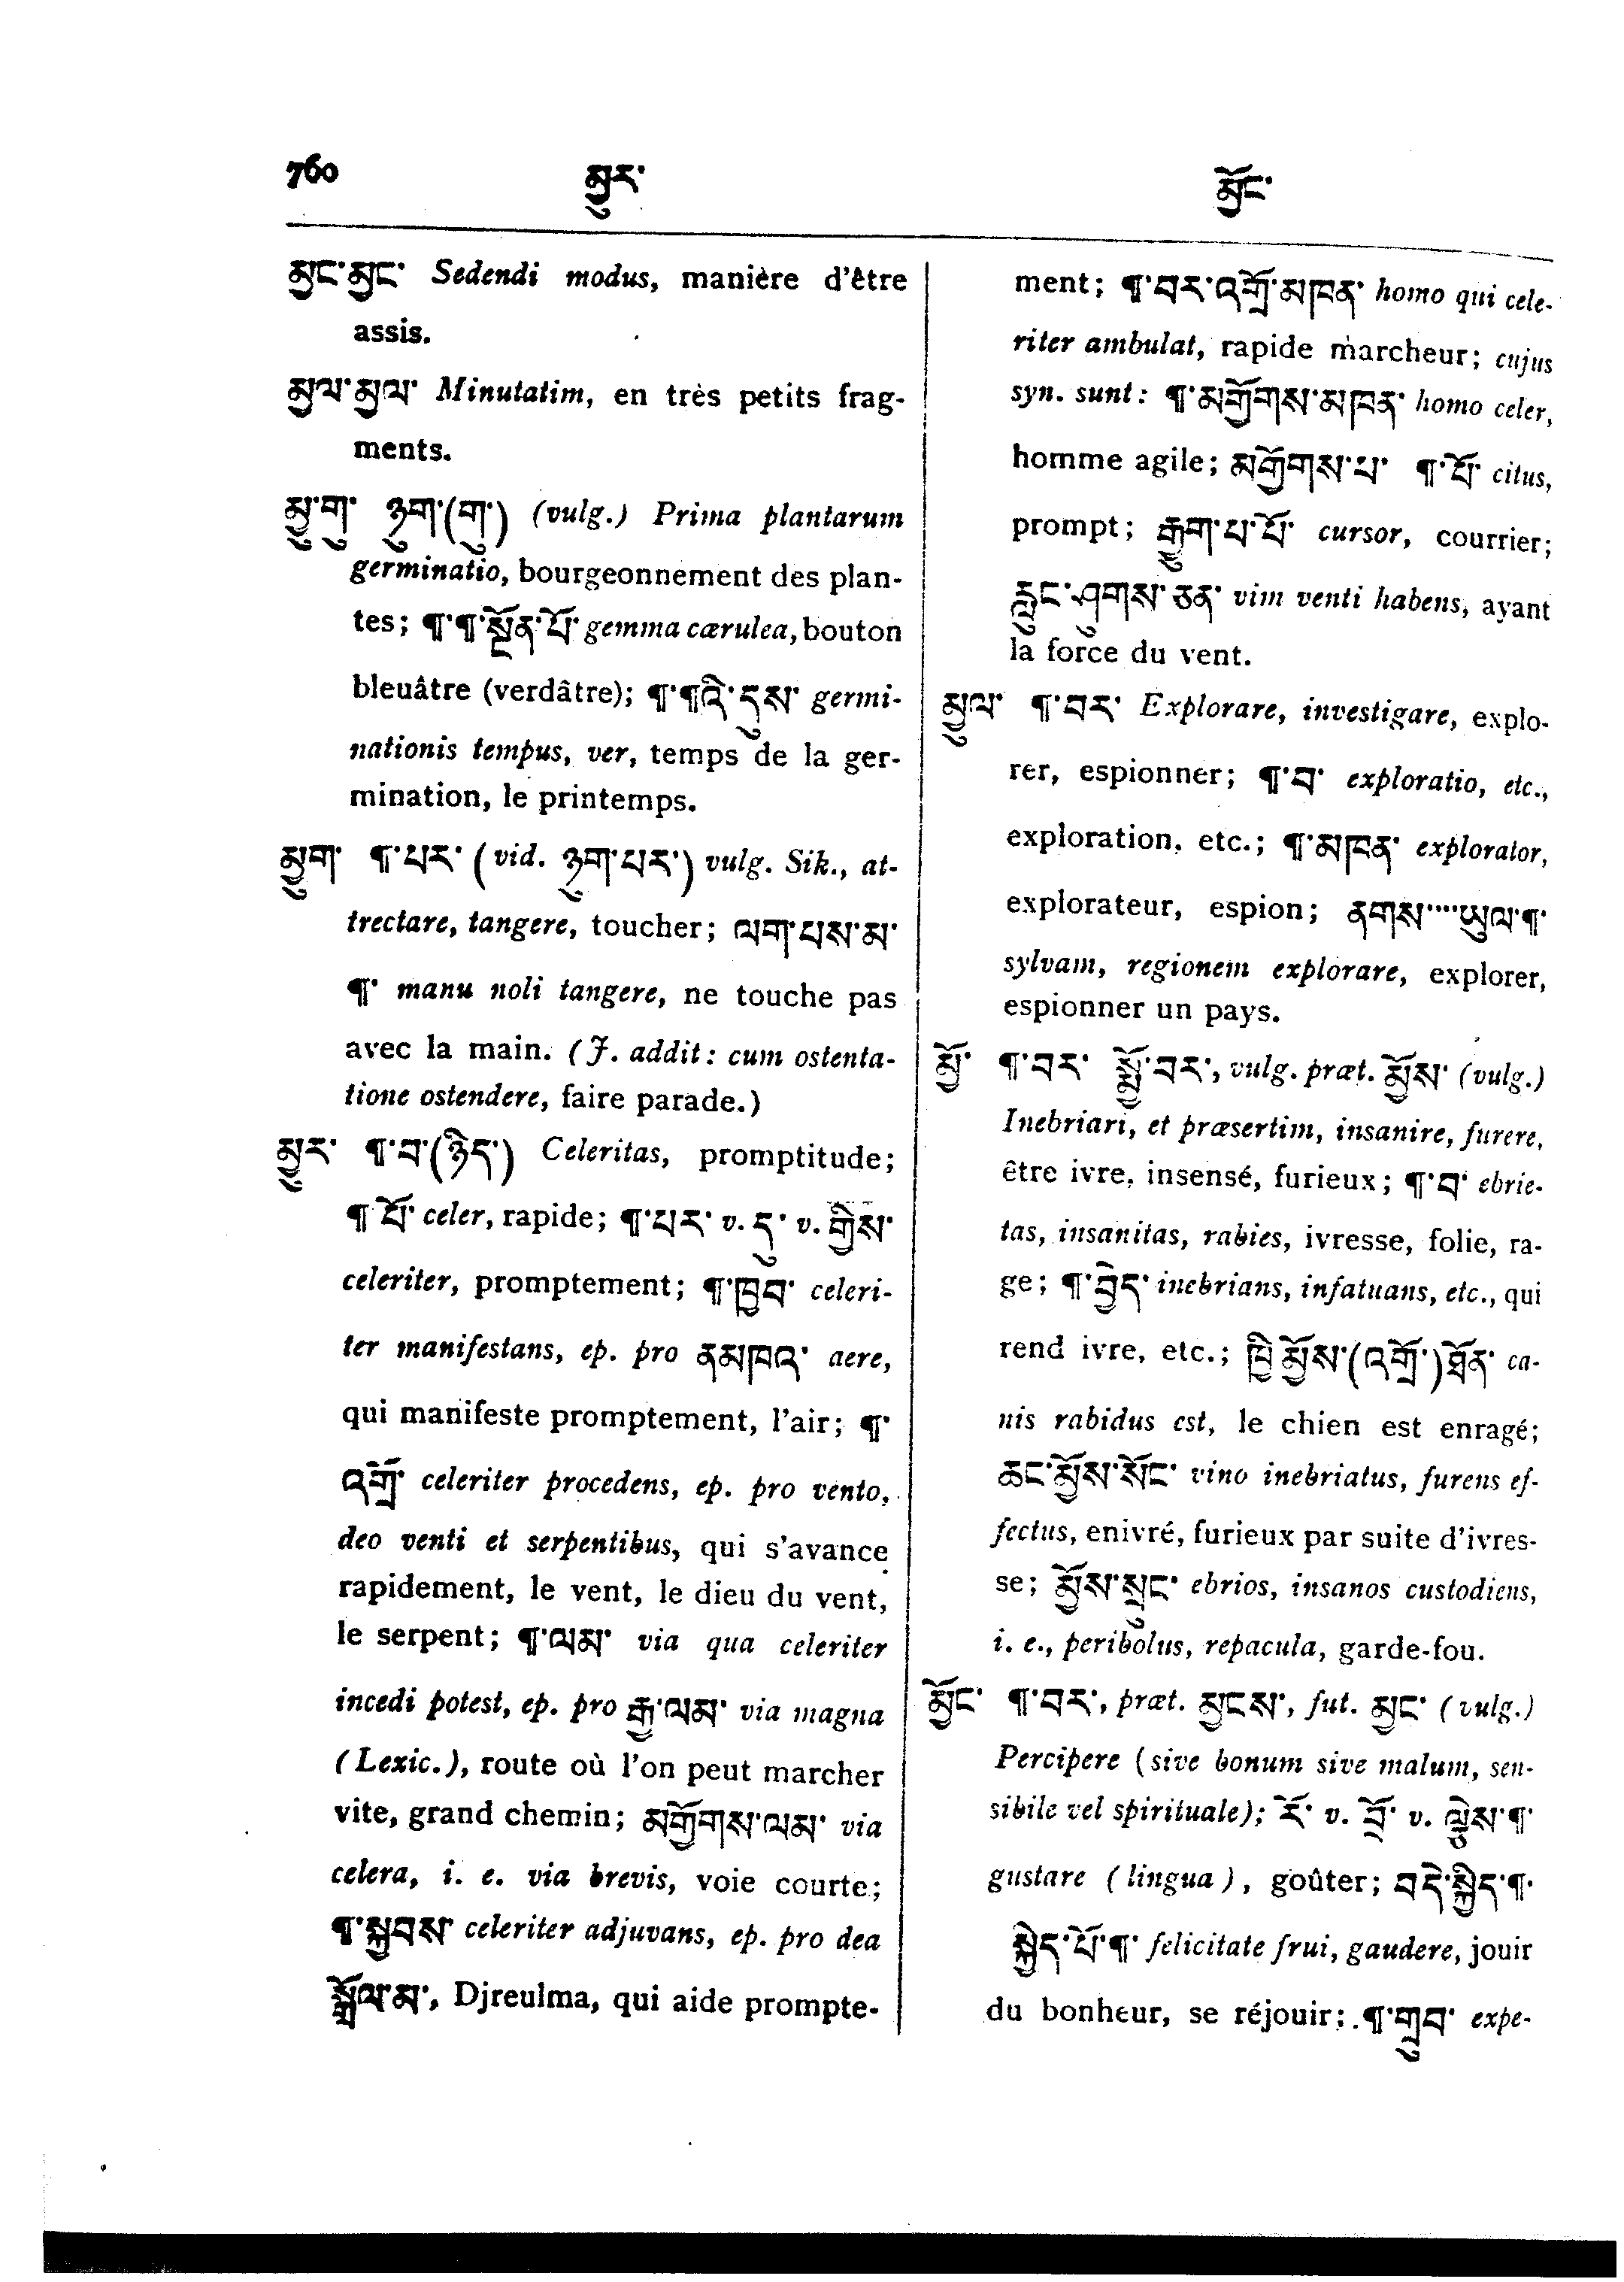 760
མྱུར་
མྱོང་
མྱང་མྱང་ Sedendi modus, manière d'être
assis.
མྱལ་མྱལ་ Minutatim, en très petits frag-
ments.
མྱུ་གུ་ ཉུག་(གུ་) (vulg.) Prima plantarum
germinatio, bourgeonnement des plan-
tes; ¶་¶་སྔོན་པོ་ gemma cærulea, bouton
bleuâtre (verdâtre); ¶་¶འི་དུས་ germi-
nationis tempus, ver, temps de la ger-
mination, le printemps.
མྱུག་ ¶་པར་ (vid. ཉུག་པར་) vulg. Sik., at-
trectare, tangere, toucher; ལག་པས་མ་
¶་ manu noli tangere, ne touche pas
avec la main. (J. addit: cum ostenta-
tione ostendere, faire parade.)
མྱུར་ ¶་བ་(ཉིད་) Celeritas, promptitude;
¶ པོ་ celer, rapide; ¶་པར་ v. དུ་ v. གྱིས་
celeriter, promptement; ¶་ཁྱབ་ celeri-
ter manifestans, ep. pro ནམཁའ་ aere,
qui manifeste promptement, l'air; ¶་
འགྲོ་ celeriter procedens, ep. pro vento,
deo venti et serpentibus, qui s'avance
rapidement, le vent, le dieu du vent,
le serpent; ¶་ལམ་ via qua celeriter
incedi potest, ep. pro རྒྱ་ལམ་ via magna
(Lexic.), route où l'on peut marcher
vite, grand chemin; མགྱོགས་ལམ་ via
celera, i. e. via brevis, voie courte;
¶་སྐྱབས་ celeriter adjuvans, ep. pro dea
སྒྲོལ་མ་, Djreulma, qui aide prompte-
ment; ¶་བར་འགྲོ་མཁན་ homo qui cele-
riter ambulat, rapide marcheur; cujus
syn. sunt: ¶་མགྱོགས་མཁན་ homo celer,
homme agile; མགྱོགས་པ་ ¶་པོ་ citus,
prompt; རྒྱུག་པ་པོ་ cursor, courrier;
རླུང་ཤུགས་ཅན་ vim venti habens, ayant
la force du vent.
མྱུལ་ ¶་བར་ Explorare, investigare, explo-
rer, espionner; ¶་བ་ exploratio, etc.,
exploration, etc.; ¶་མཁན་ explorator,
explorateur, espion; ནགས་་་་ཡུལ་¶་
sylvam, regionem explorare, explorer,
espionner un pays.
མྱོ་ ¶་བར་ སྨྱོ་བར་, vulg. præt. མྱོས་ (vulg.)
Inebriari, et præsertim, insanire, furere,
être ivre, insensé, furieux; ¶་བ་ ebrie-
tas, insanitas, rabies, ivresse, folie, ra-
ge; ¶་བྱེད་ inebrians, infatuans, etc., qui
rend ivre, etc.; ཁྱི་མྱོས་(འགྲོ་)ཐོན་ ca-
nis rabidus est, le chien est enragé;
ཆང་མྱོས་སོང་ vino inebriatus, furens ef-
fectus, enivré, furieux par suite d'ivres-
se; མྱོས་སྲུང་ ebrios, insanos custodiens,
i. e., peribolus, repacula, garde-fou.
མྱོང་ ¶་བར་, præt. མྱངས་, fut. མྱང་ (vulg.)
Percipere (sive bonum sive malum, sen-
sibile vel spirituale); རོ་ v. བྲོ་ v. ལྕེས་¶་
gustare (lingua), goûter; བདེ་སྐྱིད་¶་
སྐྱིད་པོ་¶་ felicitate frui, gaudere, jouir
du bonheur, se réjouir; ¶་གྲུབ་ expe-